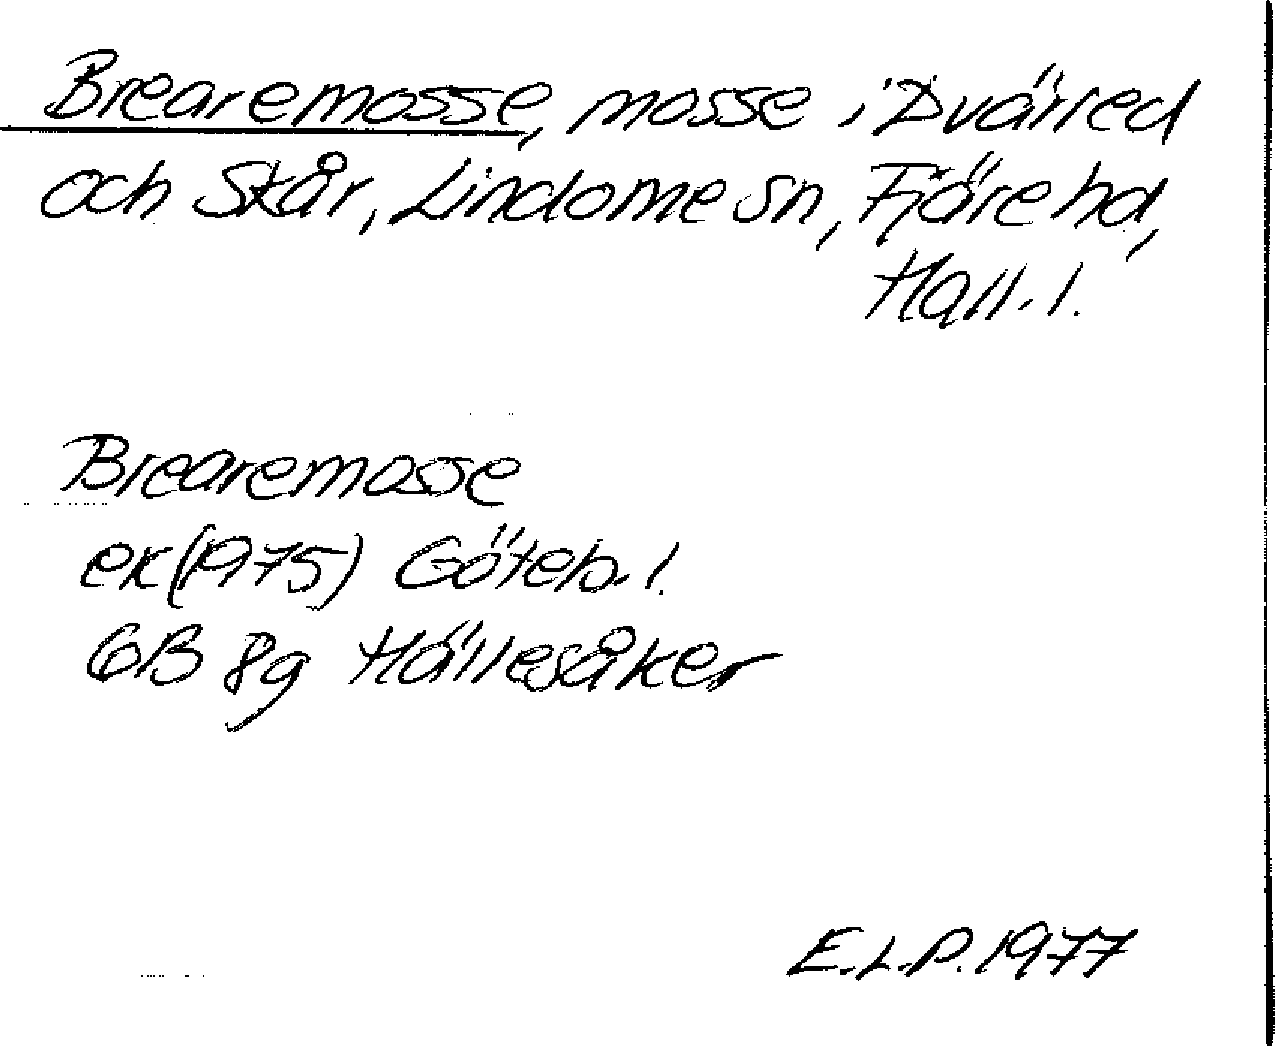 Brearemosse, mosse i Dvärred
och Skår, Lindome sn, Fjäre hd,
Hall. l.
Brearemosse
ek (1975) Göteb. l.
6B 8g Hällesåker
E.L.P. 1977